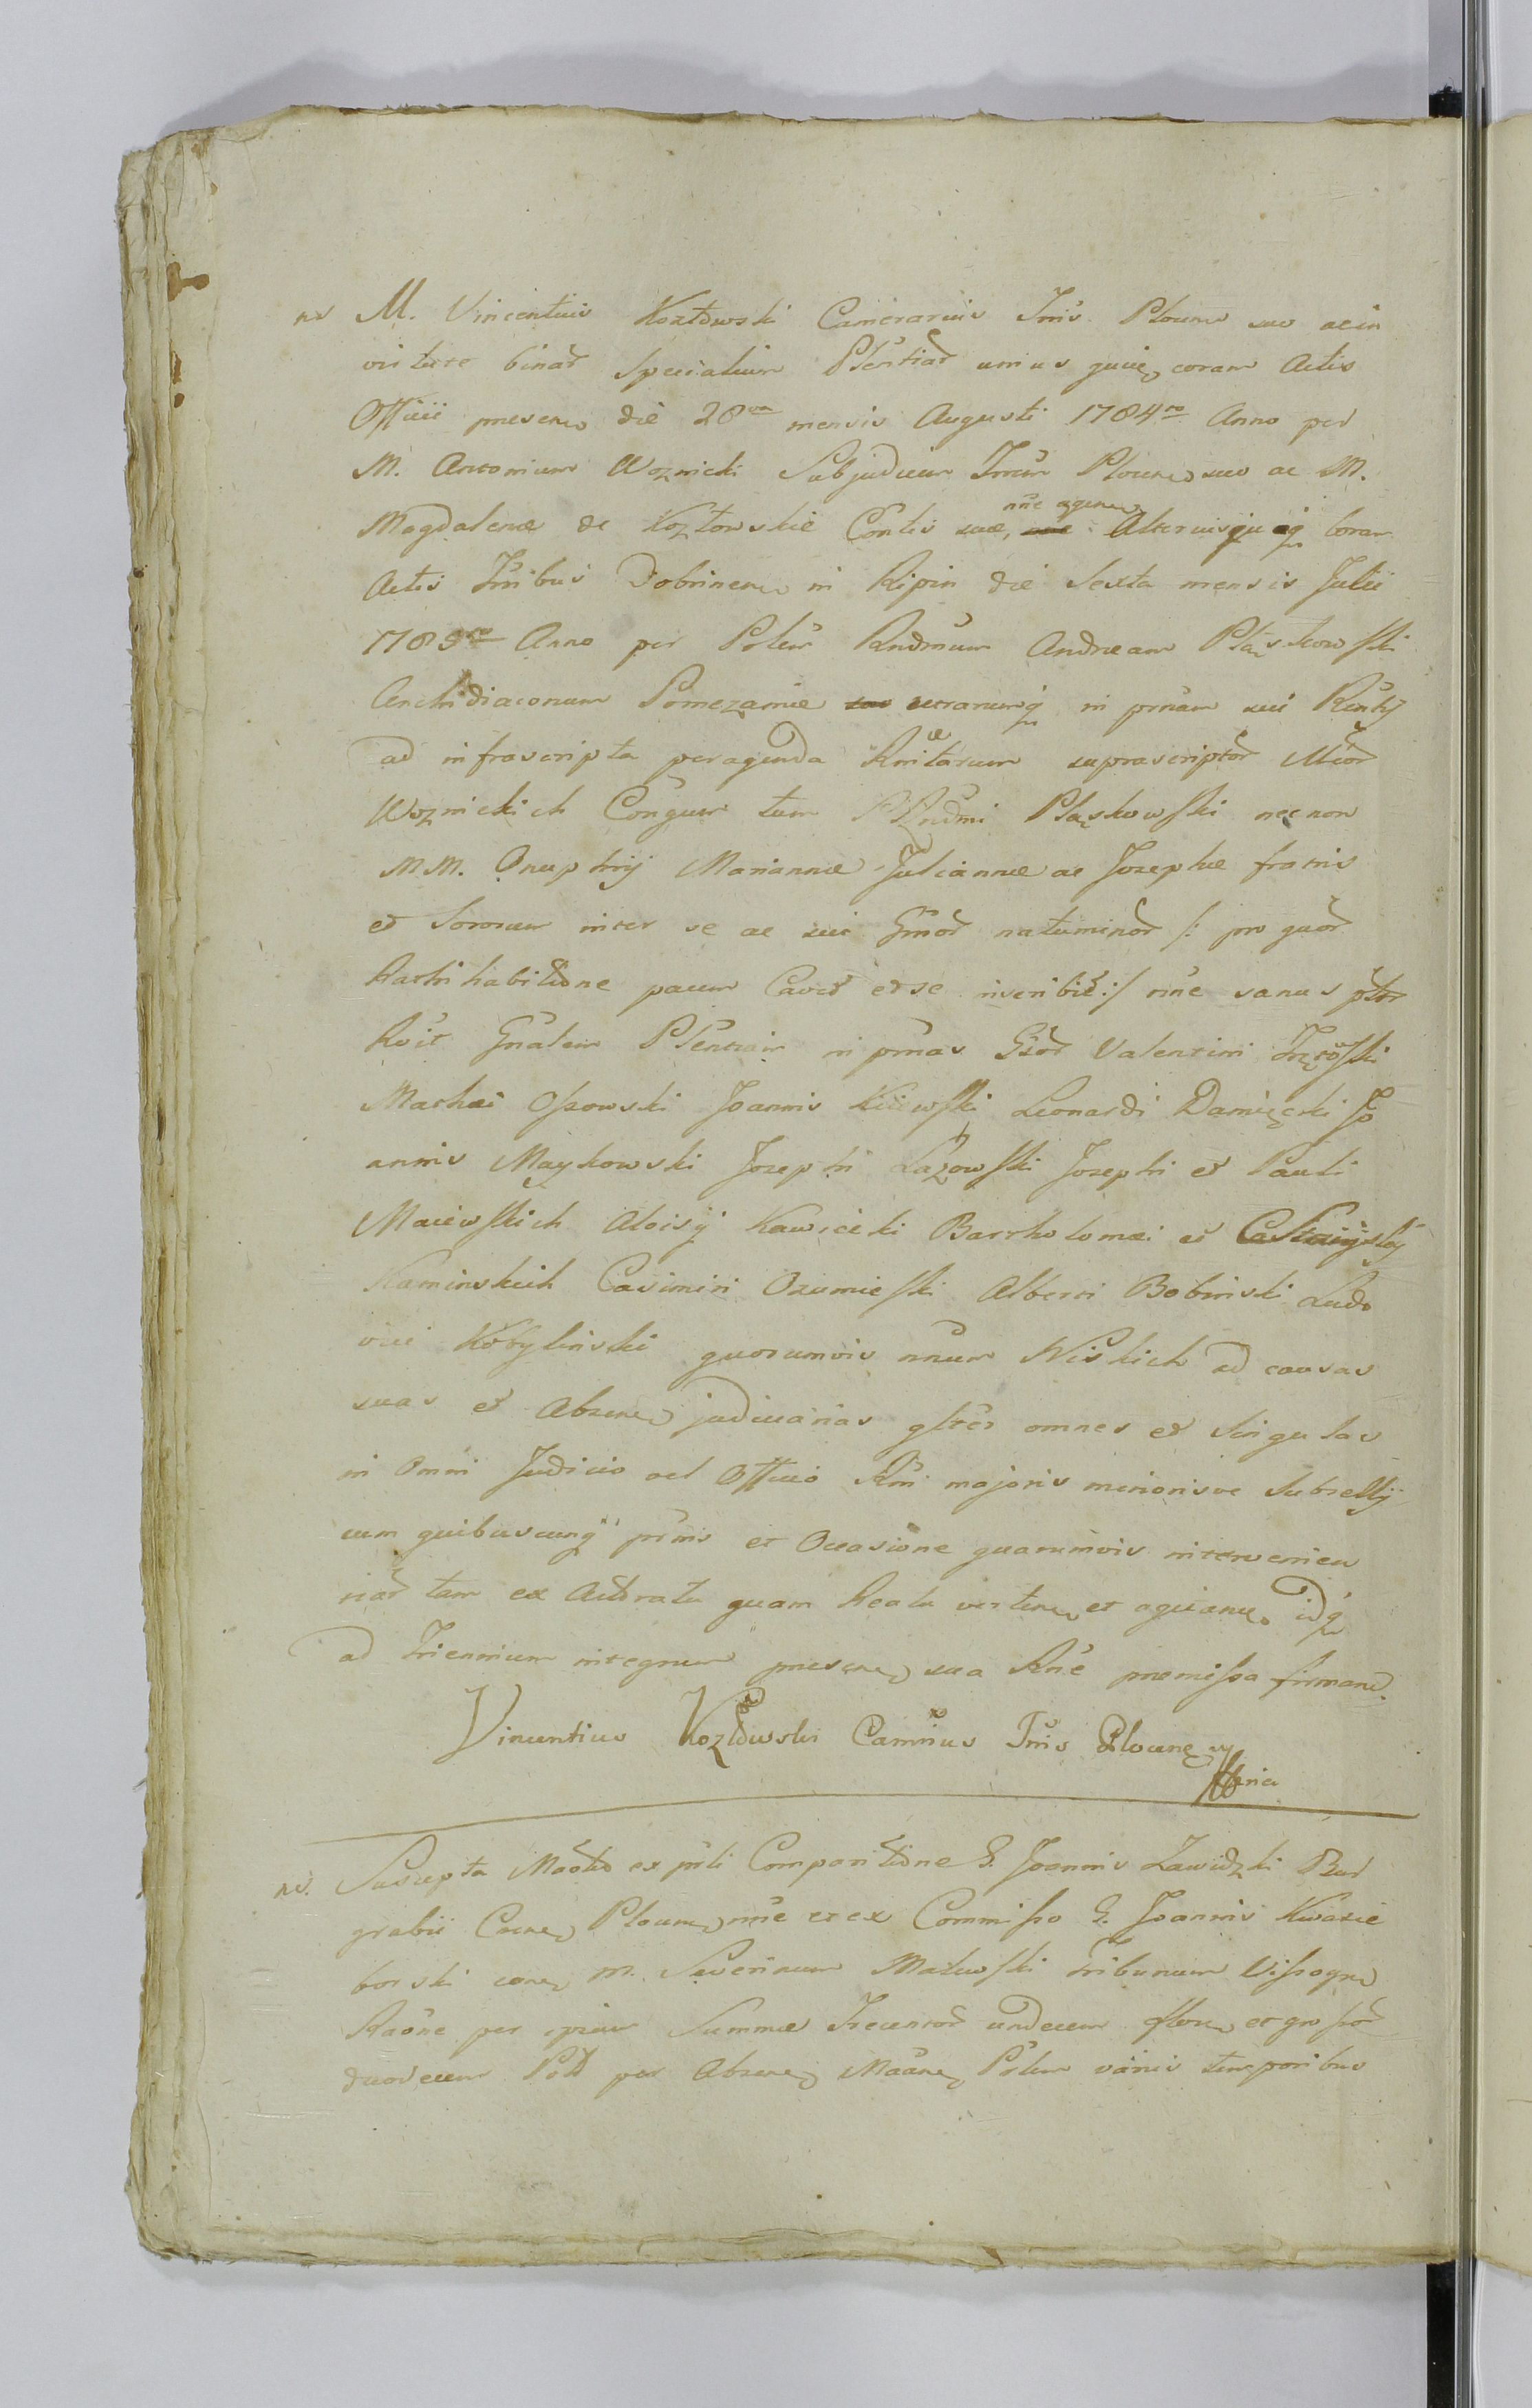 nd M. Vincentius Kozłowski Camerarius Trris Plocen suo ac in
virtute binar Specialium Plentiar unius quię coram Actis
Officii presen die 28va mensis Augusti 1784to Anno per
M. Antonium Woznicki Subjudicem Trrum Plocen suo ac M.
Magdalenæ de Kozłowskie Contis suæ, nne agen Alteriusque coram
Actis Trribus Dobrinen in Ripin die Sexta mensis Julii
Anno per Perlem Rndmum Andream Pląskowski
Archidiaconum Pomezaniæ utrarumq in prnam sui Rcntij
ad infrascripta peragenda Rnitarum suprascriptor Mcor
Woznickich Congum tum PRndmi Pląskowski necnon
M.M. Onuphrij Mariannæ Juliannæ ac Josephæ fratris
et Sororum inter se ac sui Gmor natuminor /: pro quor
Rathihabitione pacem Cavet et se inscribit :/ nne sanus
Rcit Gnalem Plentiam in prnas Gsor Valentini
Mathæi Ossowski Joannis Kiiewski Leonardi Damięcki Jo
annis Maykowski Josephi Łazowski Josephi et Pauli
Maiewskich Aloisij Kawiecki Bartholomæi et
Kaminskich Casimiri Ozumieski Alberti Bobinski Ludo
vici Kobylinski quorumvis nnum Niskich ad causas
suas et Absen judiciarias gltes omnes et singulas
in Omni Judicio vel Officio Rni majoris minorisve Subsellij
cum quibuscunq prnis et Occasione quarumvis intervenien
tiar tam ex Actoratu quam Reatu verten et agitan idq
ad Triennium integrum presen sua Rne premissa firman.
Vincentius Kozłowski Camrius Trris Plocen

nd. Suscepta Maotio ex prli Comparitione G. Joannis Zawidzki Bur
grabii Cren Plocen nne et ex Commisso G. Joannis Kwasie
borski coram M. Severinum Malewski tribunum Wissogrn
Raone per ipsum Summæ Trecentor undecem floren et grossor
duodecem Pol per Absen Maan Perlem variis temporibus